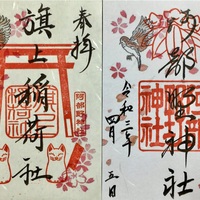 奉拝
旗上稲荷社
阿部野神社
阿部野神社
令和三年
四月
五日
神社